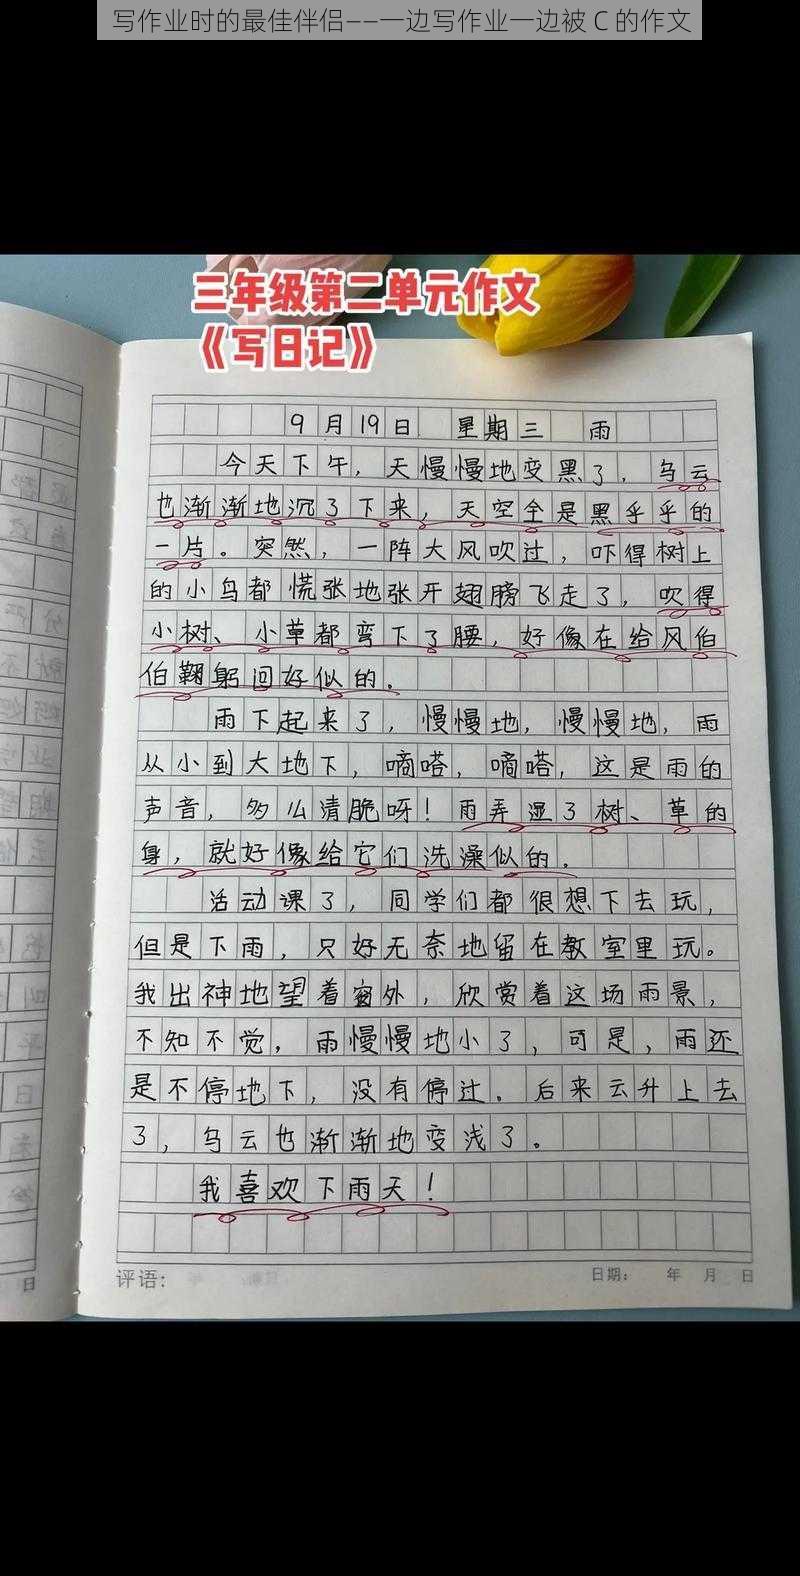 写作业时的最佳伴侣——一边写作业一边被C的作文
三年级第二单元作文
《写日记》
9月19日 星期三 雨
今天下午,天慢慢地变黑了,乌云
也渐渐地沉了下来,天空全是黑乎乎的
一片。突然,一阵大风吹过,吓得树上
的小鸟都慌张地张开翅膀飞走了,吹得
小树、小草都弯下了腰,好像在给风伯
伯鞠躬回好似的。
雨下起来了,慢慢地,慢慢地,雨
从小到大地下,嘀嗒,嘀嗒,这是雨的
声音,多么清脆呀!雨弄湿了树、草的
身,就好像给它们洗澡似的。
活动课了,同学们都很想下去玩,
但是下雨,只好无奈地留在教室里玩。
我出神地望着窗外,欣赏着这场雨景,
不知不觉,雨慢慢地小了,可是,雨还
是不停地下,没有停过。后来云升上去
了,乌云也渐渐地变浅了。
我喜欢下雨天!
评语: 日期: 年 月 日